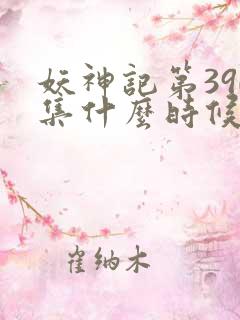 妖神記第39
集什麼時候
崔纳木